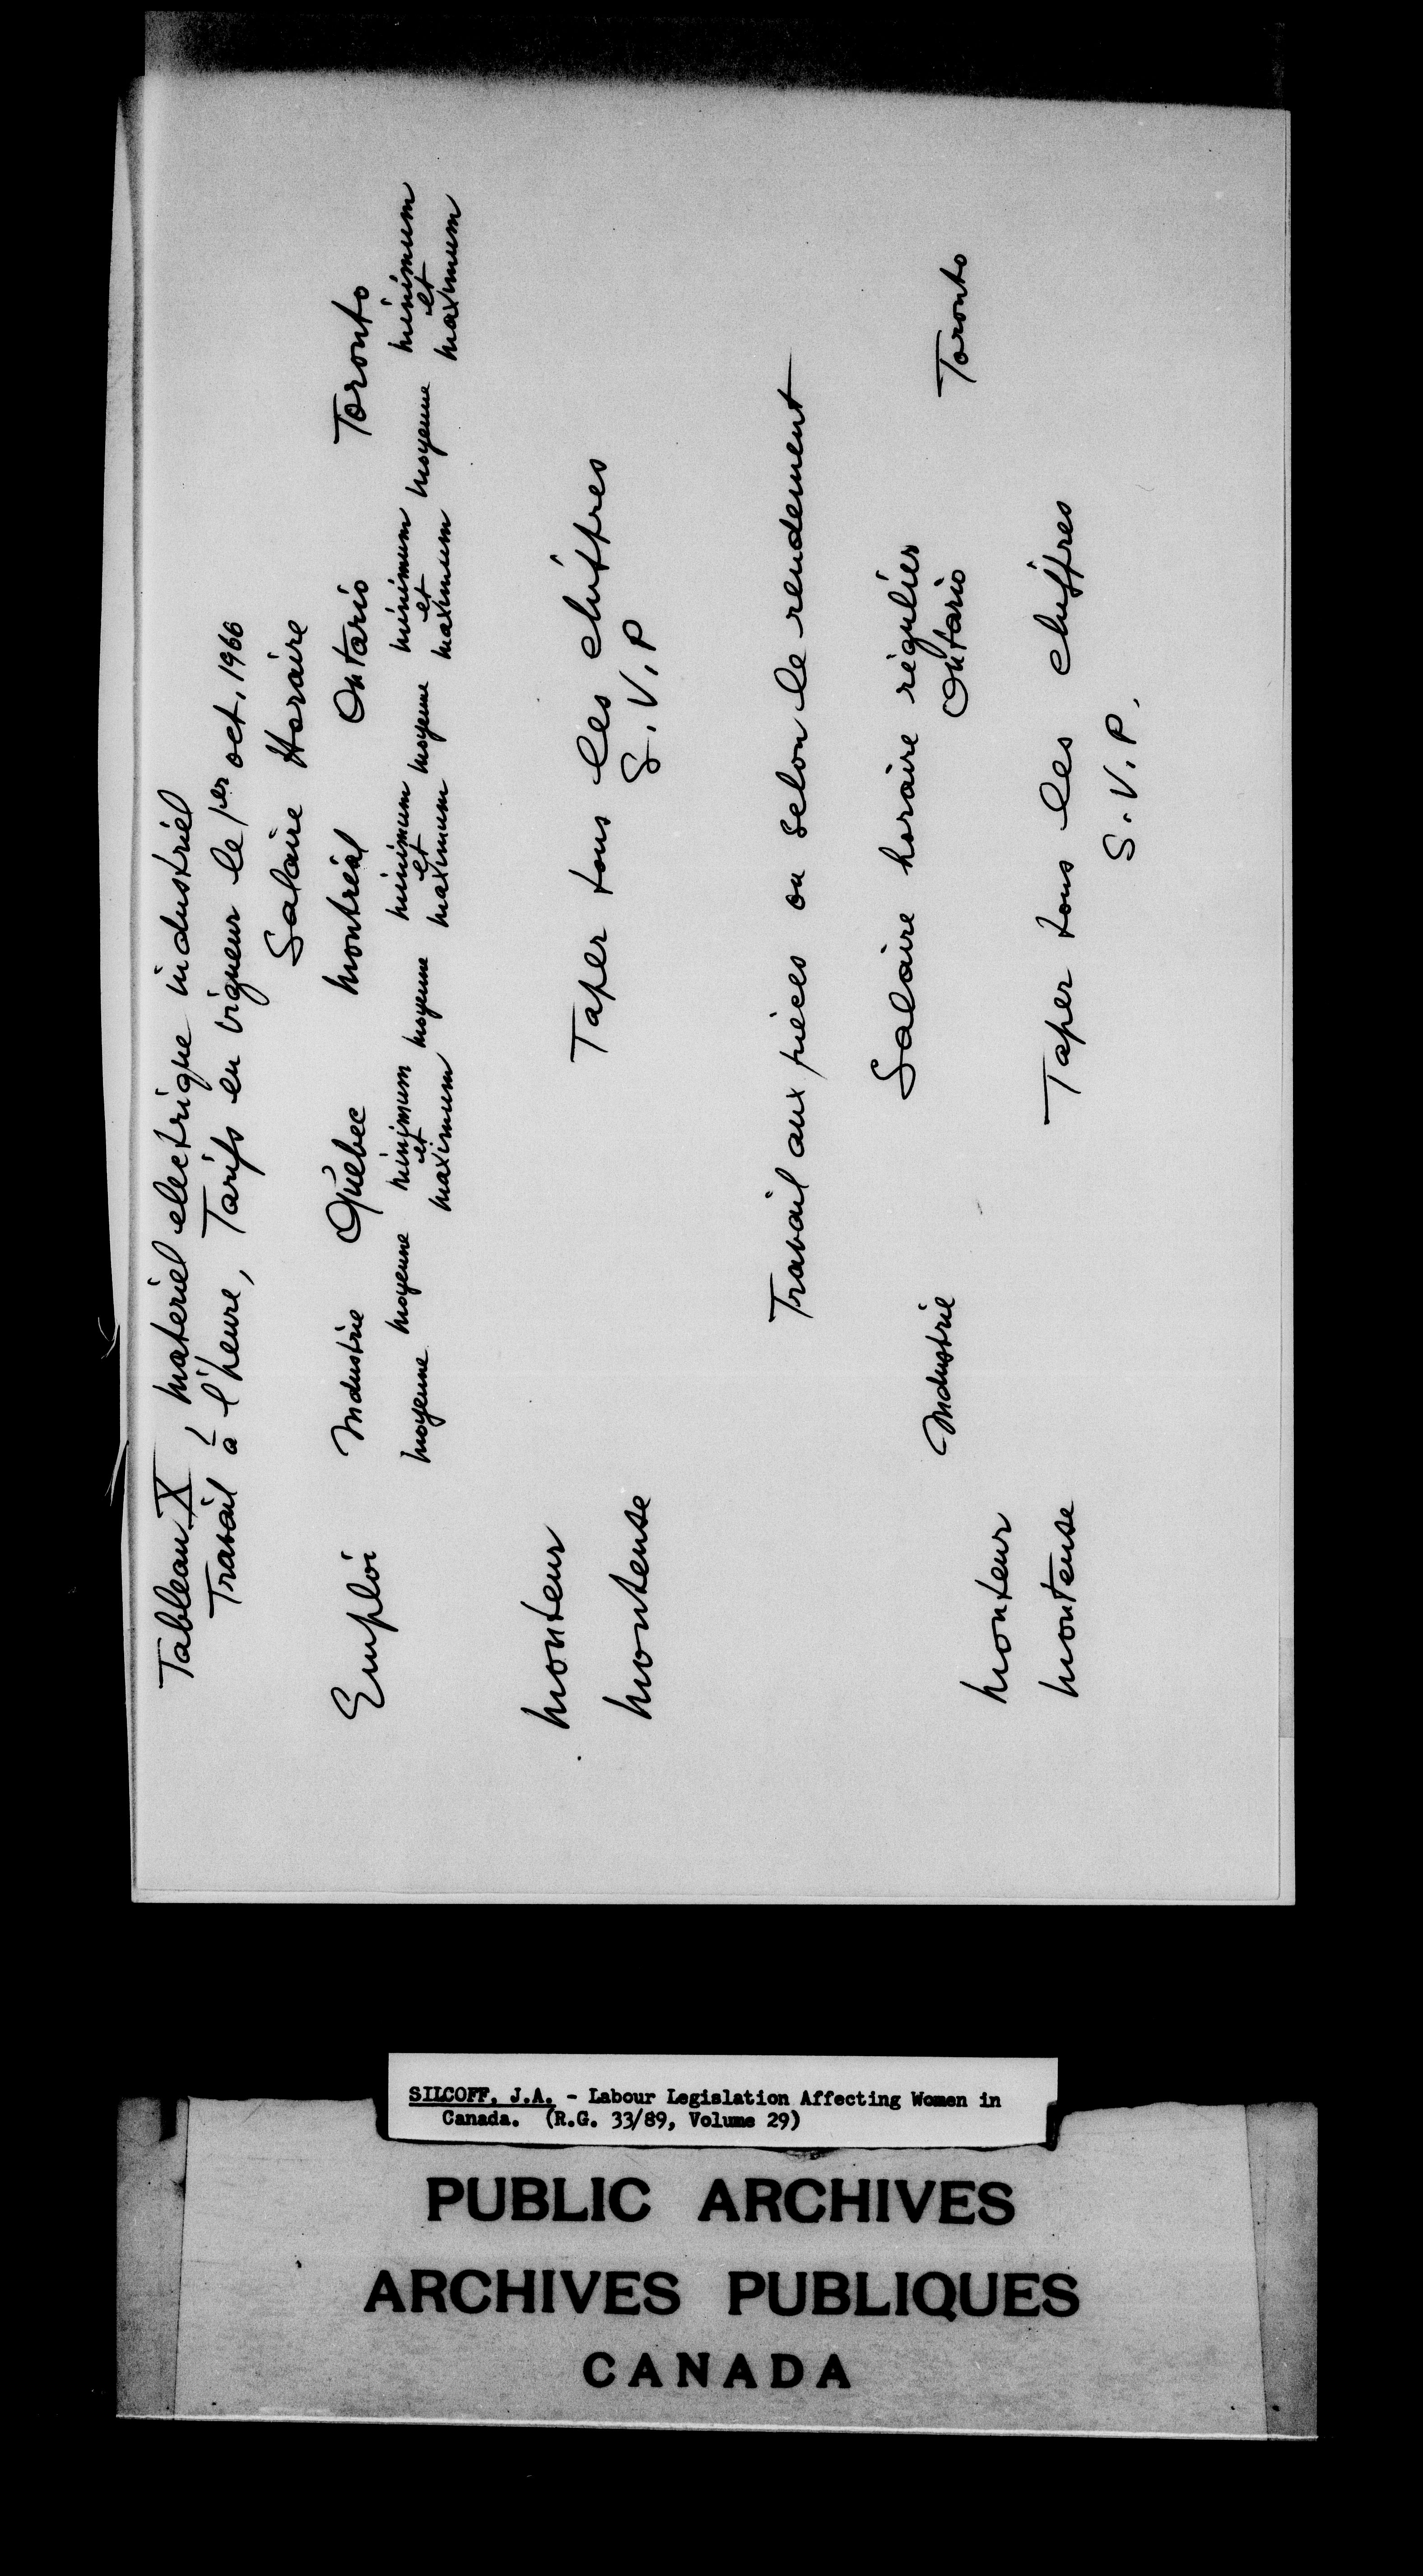 Tableau X, matériel electrique industriel
Travail à l'heure, Tarifs en vigueur le 1er oct, 1966
Salaire Horaire
Emploi Industrie Québec Montréal Ontario Toronto
moyenne moyenne minimum et maximum moyenne minimum et maximum moyenne minimum et maximum moyenne minimum et maximum
monteur
Taper tous les chiffres
monteuse
S.V.P
Travail aux pièces ou selon le rendement
Salaire horaire régulier
Industrie Ontario Toronto
monteur
Taper tous les chiffres
monteuse
S.V.P.
SILCOFF, J.A. - Labour Legislation Affecting Women in
Canada. (R.G. 33/89, Volume 29)
PUBLIC ARCHIVES
ARCHIVES PUBLIQUES
CANADA